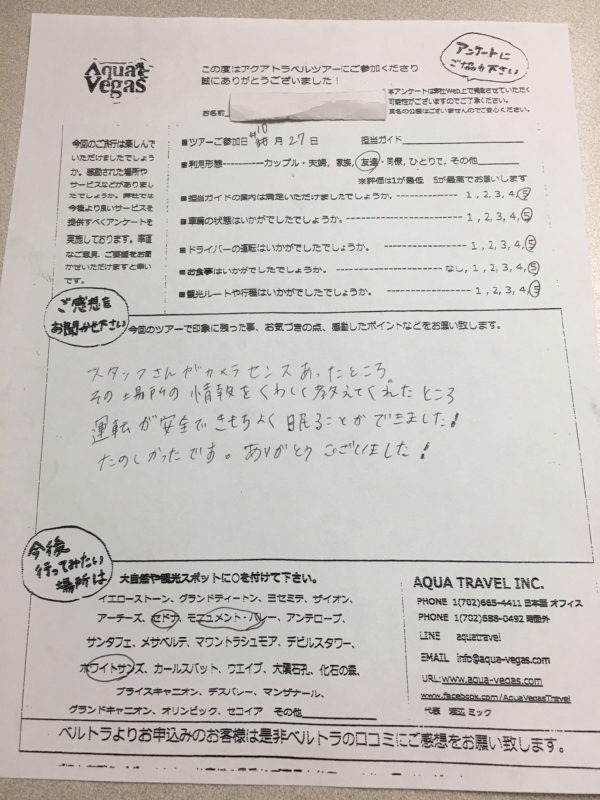 Aqua
Vegas
この度はアクアトラベルツアーにご参加くださり
誠にありがとうございました！
アンケートに
ご協力下さい
本アンケートは弊社Web上で掲載させていただく
可能性がございますのでご了承ください。
実名の公開はございませんのでご安心ください。
お名前
今回のご旅行は楽しんで
いただけましたでしょう
か。感動された場所や
サービスなどがありまし
たでしょうか。弊社では
今後より良いサービスを
提供すべくアンケートを
実施しております。率直
なご意見、ご要望をお聞
かせいただけますと幸い
です。
■ツアーご参加日 10月 27日 担当ガイド
■利用形態-----------カップル・夫婦, 家族, 友達・同僚, ひとりで, その他
※評価は1が最低 5が最高でお願いします
■担当ガイドの案内は満足いただけましたでしょうか。 1, 2, 3, 4, 5
■車輌の状態はいかがでしたでしょうか。 1, 2, 3, 4, 5
■ドライバーの運転はいかがでしたでしょうか。 1, 2, 3, 4, 5
■お食事はいかがでしたでしょうか。 なし, 1, 2, 3, 4, 5
■観光ルートや行程はいかがでしたでしょうか。 1, 2, 3, 4, 5
ご感想を
お聞かせ下さい
今回のツアーで印象に残った事、お気づきの点、感動したポイントなどをお願い致します。
スタッフさんがカメラセンスあったところ
その場所の情報をくわしく教えてくれたところ
運転が安全できもちよく眠ることができました！
たのしかったです。ありがとうございました！
今後
行ってみたい
場所は
大自然や観光スポットに○を付けて下さい。
イエローストーン、グランドティートン、ヨセミテ、ザイオン、
アーチーズ、セドナ、モニュメント・バレー、アンテロープ、
サンタフェ、メサベルデ、マウントラシュモア、デビルスタワー、
ホワイトサンズ、カールスバット、ウエイブ、大隕石孔、化石の森、
ブライスキャニオン、デスバレー、マンザナール、
グランドキャニオン、オリンピック、セコイア その他
AQUA TRAVEL INC.
PHONE 1(702)665-4411 日本語 オフィス
PHONE 1(702)588-0492 時間外
LINE aquatravel
EMAIL info@aqua-vegas.com
URL:www.aqua-vegas.com
www.facebook.com/AquaVegasTravel
代表 渡辺 ミック
ベルトラよりお申込みのお客様は是非ベルトラの口コミにご感想をお願い致します。